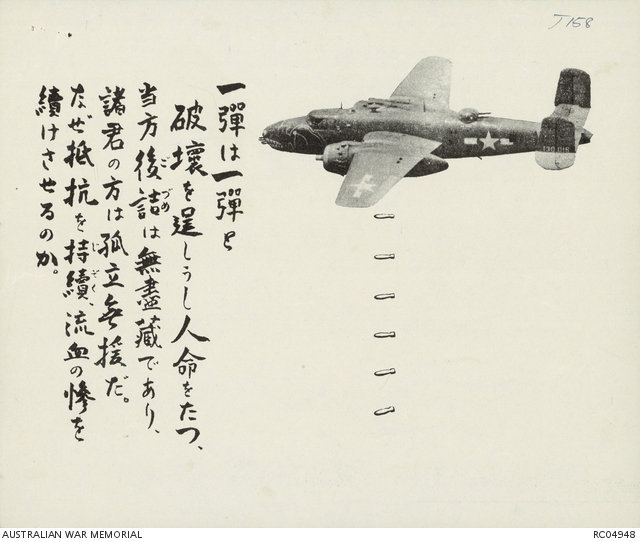 J158
一彈は一彈と
破壞を逞しうし人命をたつ、
当方後詰は無盡藏であり、
ごづめ
諸君の方は孤立無援だ。
なぜ抵抗を持續、流血の慘を
じぞく
續けさせるのか。
AUSTRALIAN WAR MEMORIAL
RC04948